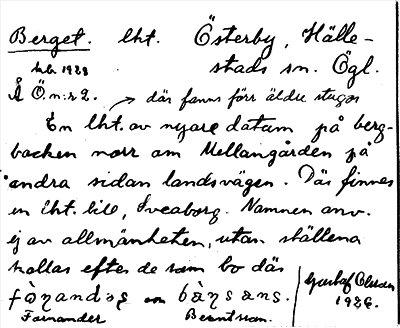 Berget. lht. Österby, Hälle-
stads sn. Ögl.
Å Ö. n:r 2. → där fanns förr äldre stugor
En lht. av nyare datum på berg-
backen norr om Mellangården på
andra sidan landsvägen. Där finnes
en lht. till, Sveaborg. Namnen anv.
ej av allmänheten, utan ställena
kallas efter de som bo där
Fernander
Gustaf Olsson
1926.